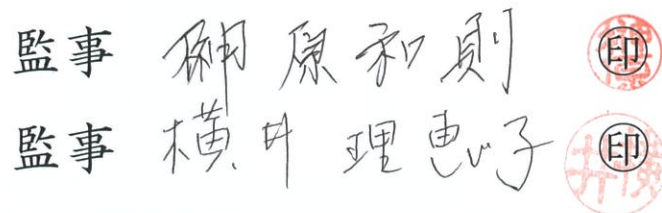 監事 原和則 ㊞
監事 横井理恵子 ㊞